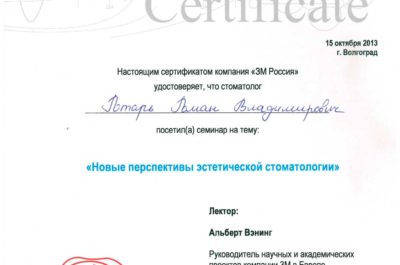 Certificate
15 октября 2013
г. Волгоград
Настоящим сертификатом компания «3М Россия»
удостоверяет, что стоматолог
Владимирович
посетил(а) семинар на тему:
«Новые перспективы эстетической стоматологии»
Лектор:
Альберт Вэнинг
Руководитель научных и академических
проектов компании 3М в Европе